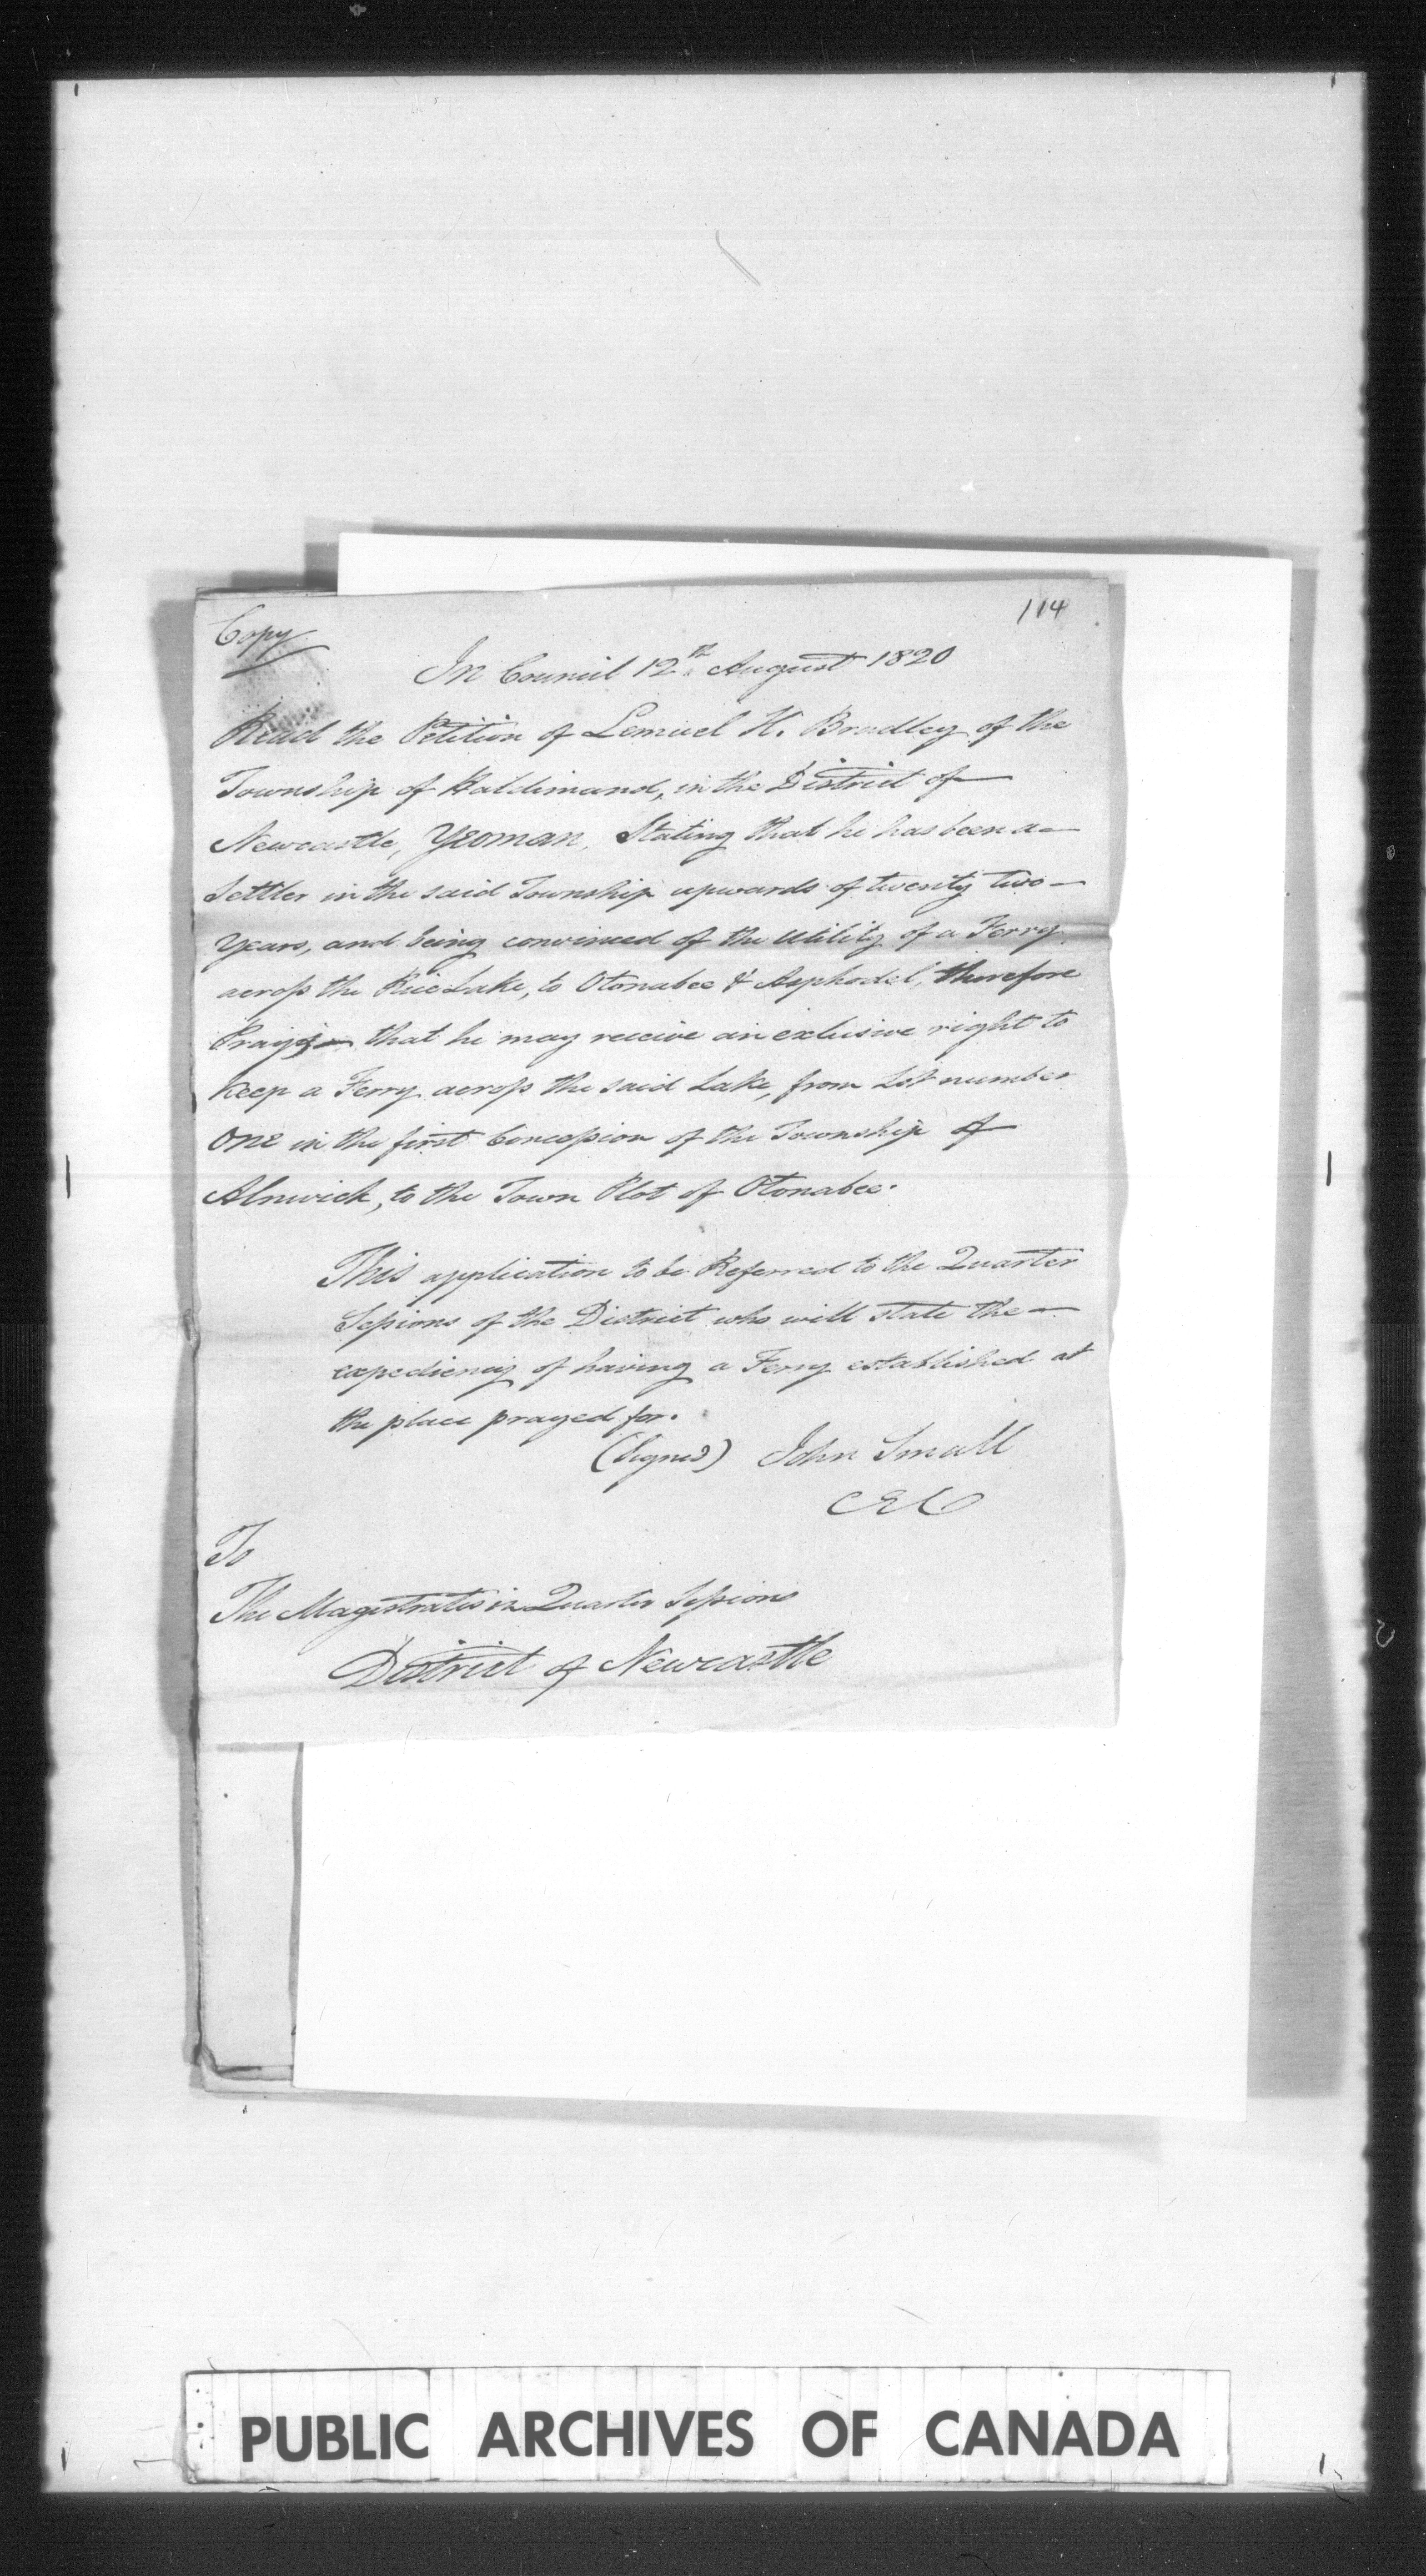 Copy
114
In Council 12th August 1820
Read the Petition of Lemuel H. Bradley of the
Township of Haldimand, in the District of
Newcastle, Yeoman, Stating that he has been a
Settler in the said Township upwards of twenty two
Years, and being convinced of the Utility of a Ferry
across the Rice Lake, to Otonabee & Asphodel, therefore
Prays that he may receive an exclusive right to
Keep a Ferry across the said Lake, from Lot number
One in the first Concession of the Township of
Alnwick, to the Town Plot of Otonabee.
This application to be Referred to the Quarter
Sessions of the District who will state the
expediency of having a Ferry established at
the place prayed for.
(Signed) John Small
CEC
To
The Magistrates in Quarter Sessions
District of Newcastle
PUBLIC ARCHIVES OF CANADA